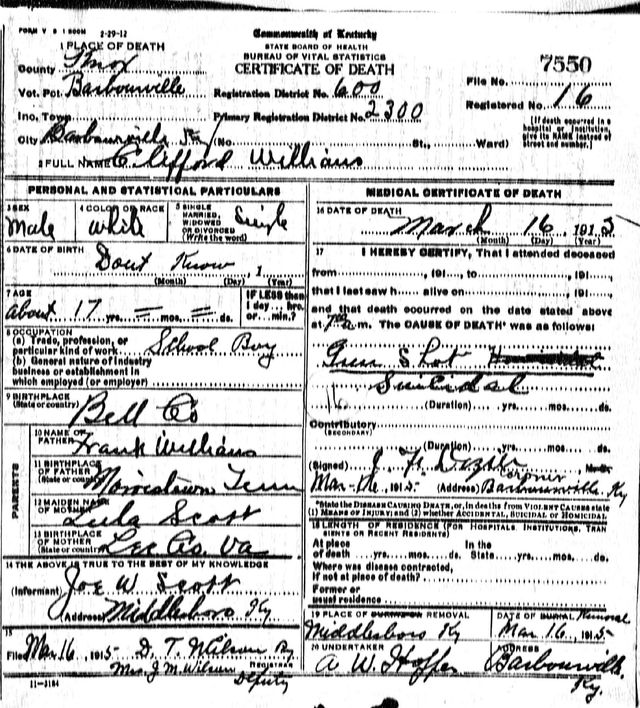 FORM V S 1 500M 2-29-12
Commonwealth of Kentucky
STATE BOARD OF HEALTH
BUREAU OF VITAL STATISTICS
CERTIFICATE OF DEATH
7550
1 PLACE OF DEATH
County Knox
Vot. Pct. Barbourville
Inc. Town
City Barbourville Ky (No. St., Ward)
Registration District No. 600
Primary Registration District No. 2300
File No.
Registered No. 16
(If death occurred in a hospital or institution, give its NAME instead of street and number.)
2 FULL NAME Clifford Williams
PERSONAL AND STATISTICAL PARTICULARS
3 SEX
Male
4 COLOR OR RACE
White
5 SINGLE
MARRIED,
WIDOWED
OR DIVORCED
(Write the word)
Single
6 DATE OF BIRTH
Dont Know, 1
(Month) (Day) (Year)
7 AGE
About 17 yrs. = mos. = ds.
IF LESS than
1 day... hrs.
or... min.?
8 OCCUPATION
(a) Trade, profession, or
particular kind of work School Boy
(b) General nature of industry
business or establishment in
which employed (or employer)
9 BIRTHPLACE
(State or country) Bell Co
PARENTS
10 NAME OF
FATHER Frank Williams
11 BIRTHPLACE
OF FATHER
(State or country) Morristown Tenn
12 MAIDEN NAME
OF MOTHER Lula Scott
13 BIRTHPLACE
OF MOTHER
(State or country) Lee Co. Va
14 THE ABOVE IS TRUE TO THE BEST OF MY KNOWLEDGE
(Informant) Joe W Scott
(Address) Middlesboro Ky
15
Filed Mar 16, 1915 D. T. Wilson By
Mrs J M Wilson REGISTRAR
Deputy
11-3184
MEDICAL CERTIFICATE OF DEATH
16 DATE OF DEATH
March 16, 1915
(Month) (Day) (Year)
17 I HEREBY CERTIFY, That I attended deceased
from, 191, to, 191,
that I last saw h alive on, 191,
and that death occurred on the date stated above
at 7 a m. The CAUSE OF DEATH* was as follows:
Gun Shot
Suicidal
(Duration) yrs. mos. ds.
Contributory
(SECONDARY)
(Duration) yrs. mos. ds.
(Signed)
Coroner
Mar-16, 1915 (Address) Barbourville, Ky
*State the DISEASE CAUSING DEATH, or, in deaths from VIOLENT CAUSES state
(1) MEANS OF INJURY; and (2) whether ACCIDENTAL, SUICIDAL or HOMICIDAL.
18 LENGTH OF RESIDENCE (FOR HOSPITALS, INSTITUTIONS, TRANSIENTS OR RECENT RESIDENTS)
At place
of death yrs. mos. ds.
In the
State yrs. mos. ds.
Where was disease contracted,
If not at place of death?
Former or
usual residence
19 PLACE OF BURIAL OR REMOVAL
Middlesboro Ky
DATE OF BURIAL Removal
Mar 16, 1915
20 UNDERTAKER
A W Hopper
ADDRESS
Barbourville
Ky.